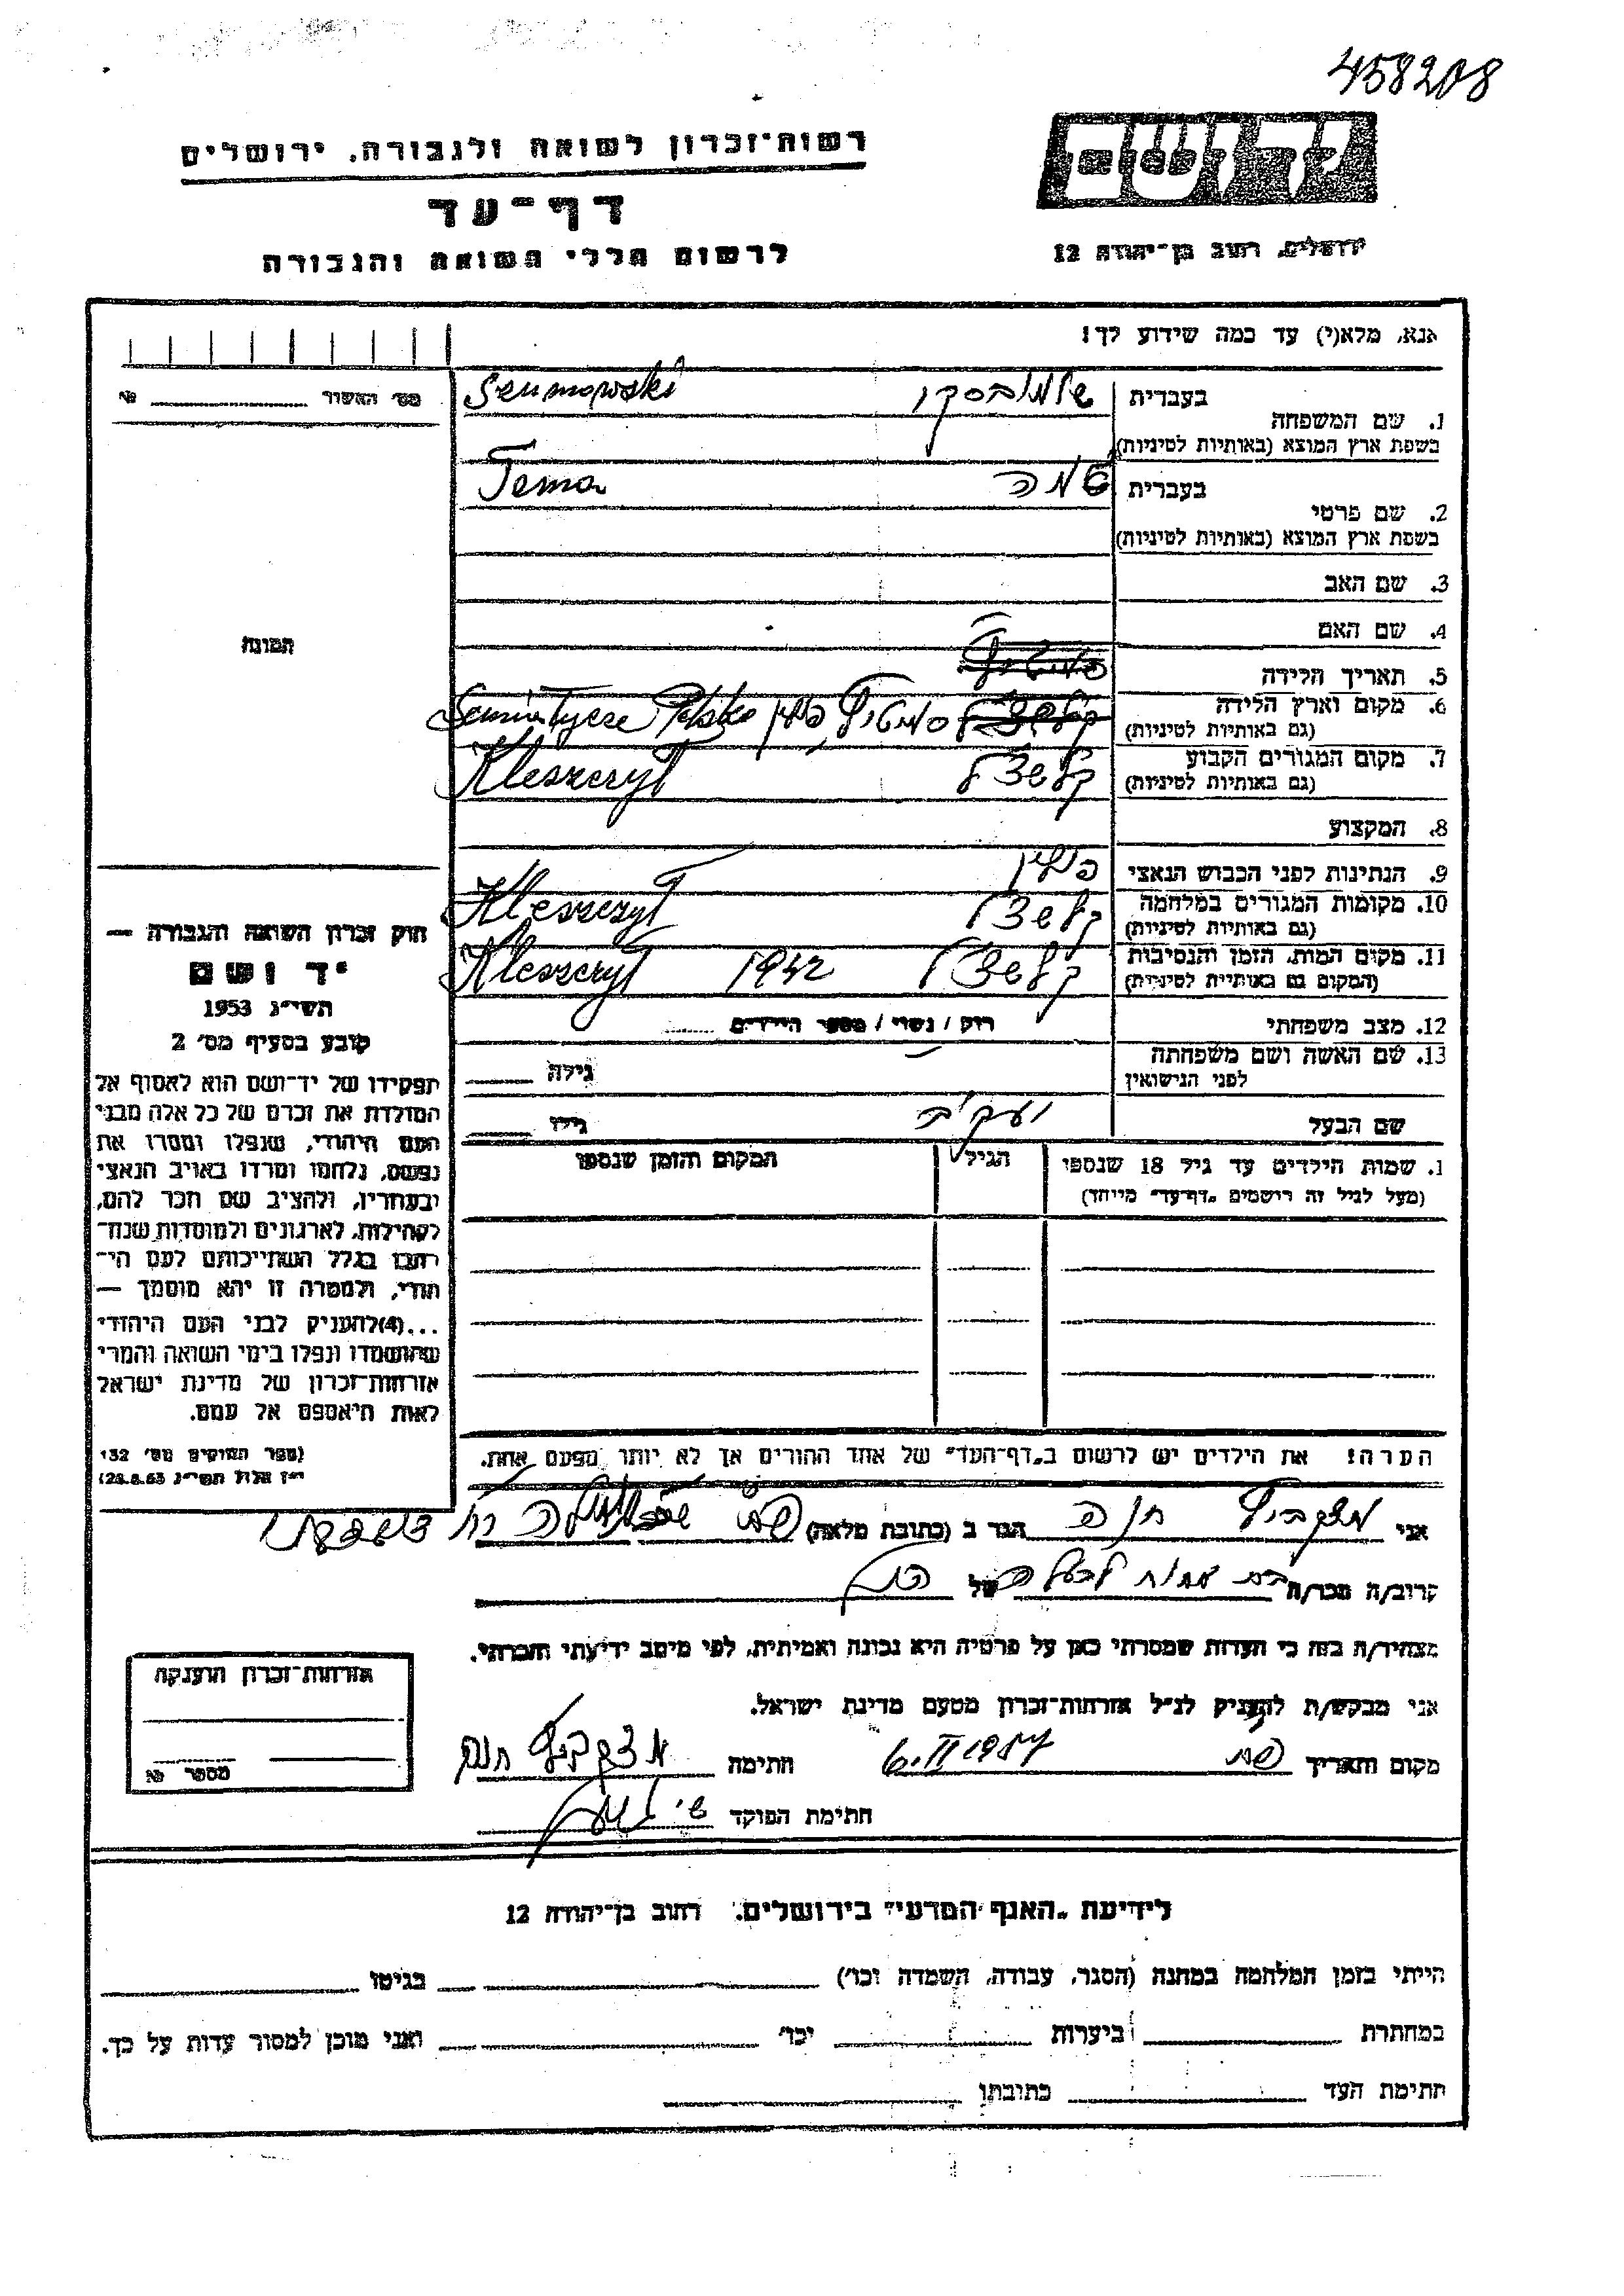 458208
יד ושם
רשות־זכרון לשואה ולגבורה, ירושלים
דף־עד
לרשום חללי השואה והגבורה
ירושלים, רחוב בן־יהודה 12
אנא, מלא(י) עד כמה שידוע לך!
מס׳ האשור № 
1. שם המשפחה
בעברית שומובסקי Szumowski
בשפת ארץ המוצא (באותיות לטיניות)
2. שם פרטי
בעברית טמה Tema
בשפת ארץ המוצא (באותיות לטיניות)
3. שם האב
4. שם האם
5. תאריך הלידה
6. מקום וארץ הלידה פולין Polska
(גם באותיות לטיניות)
7. מקום המגורים הקבוע קלשצל Kleszczył
(גם באותיות לטיניות)
8. המקצוע
9. הנתינות לפני הכבוש הנאצי פולין
10. מקומות המגורים במלחמה קלשצל Kleszczył
(גם באותיות לטיניות)
11. מקום המות, הזמן והנסיבות קלשצל 1942 Kleszczył
(המקום גם באותיות לטיניות)
12. מצב משפחתי רוק / נשוי / מספר הילדים
13. שם האשה ושם משפחתה
לפני הנישואין גילה
שם הבעל יעקב גילו
1. שמות הילדים עד גיל 18 שנספו הגיל המקום והזמן שנספו
(מעל לגיל זה רושמים „דף־עד״ מיוחד)
הערה! את הילדים יש לרשום ב„דף־העד״ של אחד ההורים אך לא יותר מפעם אחת.
התמונה
חוק זכרון השואה והגבורה —
יד ושם
תשי״ג 1953
קובע בסעיף מס׳ 2
תפקידו של יד־ושם הוא לאסוף אל
המולדת את זכרם של כל אלה מבני
העם היהודי, שנפלו ומסרו את
נפשם, נלחמו ומרדו באויב הנאצי
ובעוזריו, ולהציב שם וזכר להם,
לקהילות, לארגונים ולמוסדות שנח־
רבו בגלל השתייכותם לעם היהודי־
הודי, ולמטרה זו יהא מוסמך —
...(4)להעניק לבני העם היהודי
שהושמדו ונפלו בימי השואה והמרי
אזרחות־זכרון של מדינת ישראל
לאות היאספם אל עמם.
(ספר החוקים מס׳ 132
י״ז אלול תשי״ג 28.8.53)
אני חנה הגר ב (כתובת מלאה)
קרוב/ה מכר/ה של
מצהיר/ה בזה כי העדות שמסרתי כאן על פרטיה היא נכונה ואמיתית, לפי מיטב ידיעתי והכרתי.
אני מבקש/ת להעניק לנ״ל אזרחות־זכרון מטעם מדינת ישראל.
מקום ותאריך 6.II 1957 חתימה
חתימת הפוקד
אזרחות־זכרון הוענקה
מספר №
לידיעת „האגף המדעי״ בירושלים, רחוב בן־יהודה 12
הייתי בזמן המלחמה במחנה (הסגר, עבודה, השמדה וכו׳) בגיטו
במחתרת ביערות וכו׳ ואני מוכן למסור עדות על כך.
חתימת העד כתובתו